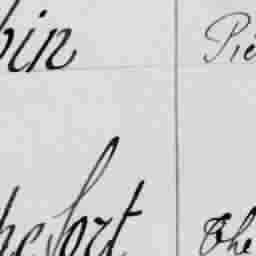 bin Pie
hefort The